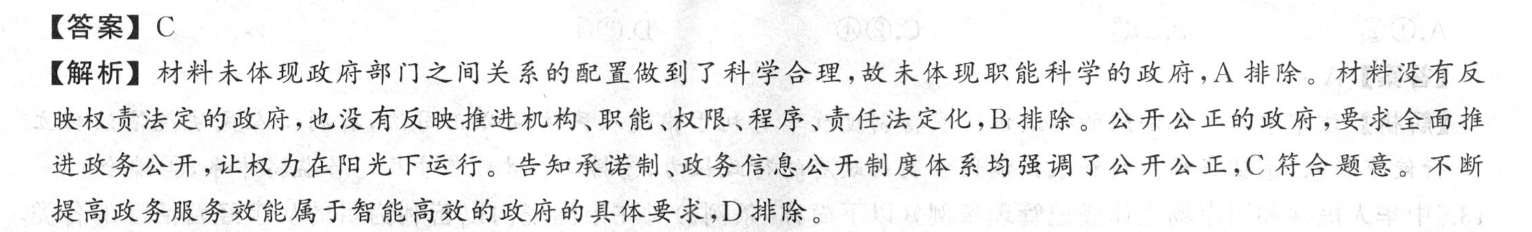 【答案】C
【解析】材料未体现政府部门之间关系的配置做到了科学合理,故未体现职能科学的政府,A 排除。材料没有反
映权责法定的政府,也没有反映推进机构、职能、权限、程序、责任法定化,B 排除。公开公正的政府,要求全面推
进政务公开,让权力在阳光下运行。告知承诺制、政务信息公开制度体系均强调了公开公正,C 符合题意。不断
提高政务服务效能属于智能高效的政府的具体要求,D 排除。